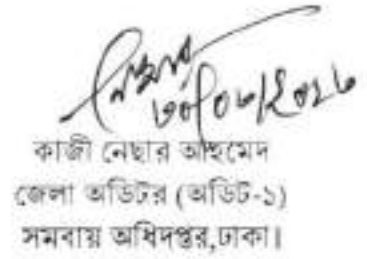 নেছার
৩০/০৬/২০১৬
কাজী নেছার আহমেদ
জেলা অডিটর (অডিট-১)
সমবায় অধিদপ্তর,ঢাকা।